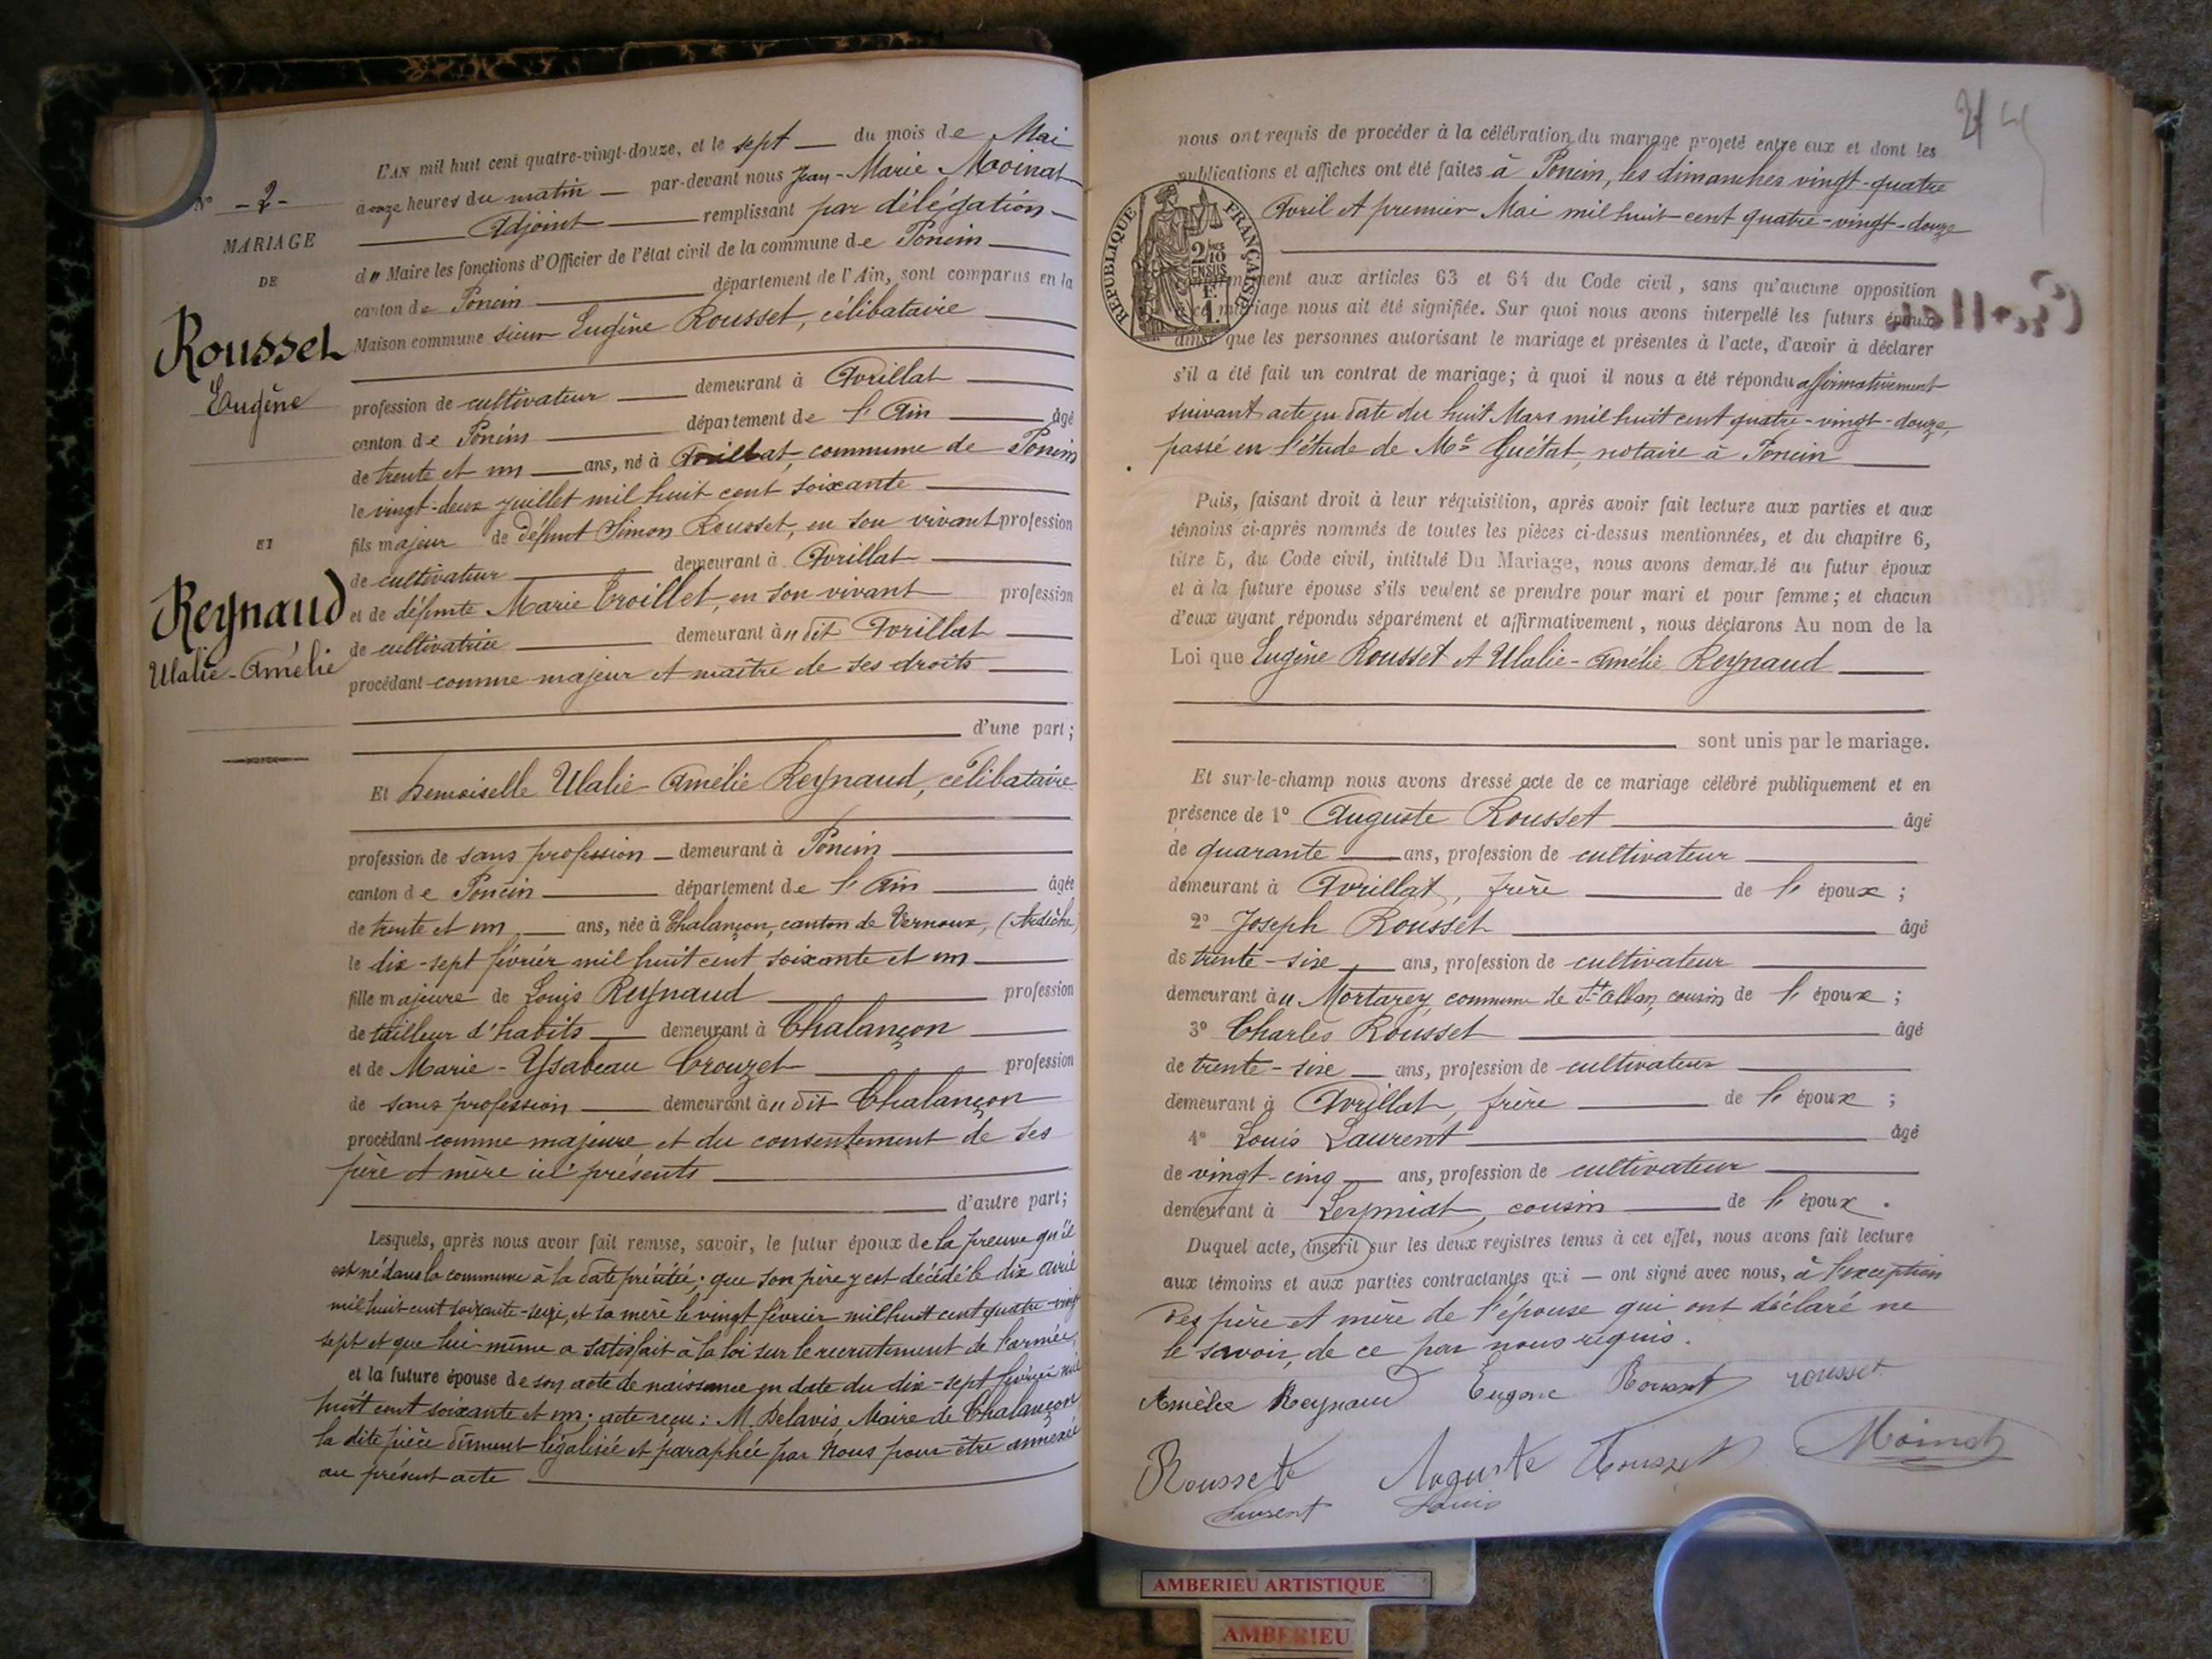 L'AN mil huit cent quatre-vingt-douze, et le sept du mois de Mai
à onze heures du matin par-devant nous Jean-Marie Moinat
Adjoint remplissant par délégation
du Maire les fonctions d'Officier de l'état civil de la commune de Poncin
canton de Poncin département de l'Ain, sont comparus en la
Maison commune sieur Eugène Rousset, célibataire
profession de cultivateur demeurant à Avrillat
canton de Poncin département de l'Ain âgé
de trente et un ans, né à Avrillat, commune de Poncin
le vingt-deux juillet mil huit cent soixante
fils majeur de défunt Simon Rousset, en son vivant profession
de cultivateur demeurant à Avrillat
et de défunte Marie Croillet, en son vivant profession
de cultivatrice demeurant à u dit Avrillat
procédant comme majeur et maître de ses droits
d'une part;
Et Demoiselle Ulalie-Amélie Reynaud, célibataire
profession de sans profession demeurant à Poncin
canton de Poncin département de l'Ain âgée
de trente et un ans, née à Chalançon, canton de Vernoux, (Ardèche)
le dix-sept février mil huit cent soixante et un
fille majeure de Louis Reynaud profession
de tailleur d'habits demeurant à Chalançon
et de Marie-Ysabeau Crouzet profession
de sans profession demeurant à u dit Chalançon
procédant comme majeure et du consentement de ses
père et mère ici présents
d'autre part;
Lesquels, après nous avoir fait remise, savoir, le futur époux de la preuve qu'il
est né dans la commune à la date précitée; que son père y est décédé le dix avril
mil huit cent soixante-seize, et sa mère le vingt février mil huit cent quatre-vingt
sept et que lui-même a satisfait à la loi sur le recrutement de l'armée,
et la future épouse de son acte de naissance en date du dix-sept février mil
huit cent soixante et un; acte reçu: M. Delavis, Maire de Chalançon
la dite pièce dûment légalisée et paraphée par Nous pour être annexée
au présent acte
N° -2-
MARIAGE
DE
Rousset
Eugène
ET
Reynaud
Ulalie-Amélie
nous ont requis de procéder à la célébration du mariage projeté entre eux et dont les
publications et affiches ont été faites à Poncin, les dimanches vingt-quatre
Avril et premier Mai mil huit cent quatre-vingt-douze
RÉPUBLIQUE FRANÇAISE
2/10 EN SUS
F.
1.
conformément aux articles 63 et 64 du Code civil, sans qu'aucune opposition
à ce mariage nous ait été signifiée. Sur quoi nous avons interpellé les futurs époux
ainsi que les personnes autorisant le mariage et présentes à l'acte, d'avoir à déclarer
s'il a été fait un contrat de mariage; à quoi il nous a été répondu affirmativement
suivant acte en date du huit Mars mil huit cent quatre-vingt-douze,
passé en l'étude de Me Guétat, notaire à Poncin
Puis, faisant droit à leur réquisition, après avoir fait lecture aux parties et aux
témoins ci-après nommés de toutes les pièces ci-dessus mentionnées, et du chapitre 6,
titre 5, du Code civil, intitulé Du Mariage, nous avons demandé au futur époux
et à la future épouse s'ils veulent se prendre pour mari et pour femme; et chacun
d'eux ayant répondu séparément et affirmativement, nous déclarons Au nom de la
Loi que Eugène Rousset et Ulalie-Amélie Reynaud
sont unis par le mariage.
Et sur-le-champ nous avons dressé acte de ce mariage célébré publiquement et en
présence de 1° Auguste Rousset âgé
de quarante ans, profession de cultivateur
demeurant à Avrillat, frère de l'époux;
2° Joseph Rousset âgé
de trente-six ans, profession de cultivateur
demeurant à u Mortarey, commune de St Alban, cousin de l'époux;
3° Charles Rousset âgé
de trente-six ans, profession de cultivateur
demeurant à Avrillat, frère de l'époux;
4° Louis Laurent âgé
de vingt-cinq ans, profession de cultivateur
demeurant à Leymiat, cousin de l'époux.
Duquel acte, inscrit sur les deux registres tenus à cet effet, nous avons fait lecture
aux témoins et aux parties contractantes qui — ont signé avec nous, à l'exception
des père et mère de l'épouse qui ont déclaré ne
le savoir, de ce par nous requis.
Amélie Reynaud Eugène Rousset rousset
Rousset Auguste Rousset Moinat
Laurent Louis
AMBERIEU ARTISTIQUE
AMBERIEU